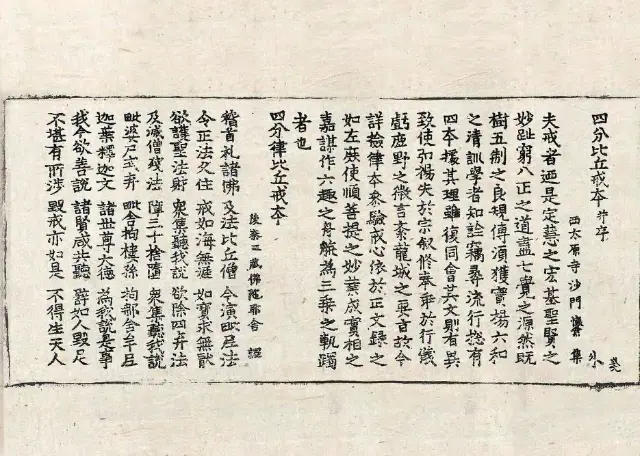 四分比丘戒本 并序
西太原寺沙門 集
夫戒者迺是定慧之宏基聖賢之
妙趾窮八正之道盡七之源然既
樹五制之良規傳須獲實揚六和
之清訓學者知詮竊尋流行惣有
四本據其理雖復同會其文則有異
致使弘揚失於宗叙修奉乖於行儀
虧鹿野之微言紊龍城之要旨故今
詳檢律本叅驗戒心依於正文錄之
如左庶使順菩提之妙業成實相之
嘉謀作六趣之舟航為三乘之軌躅
者也
四分律比丘戒本
後秦三藏佛陀耶舍 譯
稽首礼諸佛 及法比丘僧 今演毗尼法
令正法久住 戒如海無涯 如寶求無猒
欲護聖法財 衆集聽我說 欲除四弃法
及滅僧殘法 障三十捨墮 衆集聽我說
毗婆尸式弃 毗舍拘樓孫 拘那含牟尼
迦葉釋迦文 諸世尊大德 為我說是事
我今欲善說 諸賢咸共聽 辟如人毀足
不堪有所涉 毀戒亦如是 不得生天人